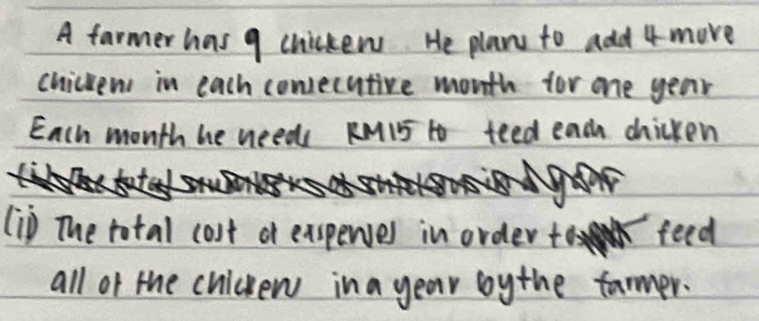 A farmer has 9 chickens He plans to add 4 more
chickens in each consecutive month for one year
Each month he needs RM15 to feed each chicken
(ii) The total cost of expenses in order to feed
all of the chickens in a year by the farmer.